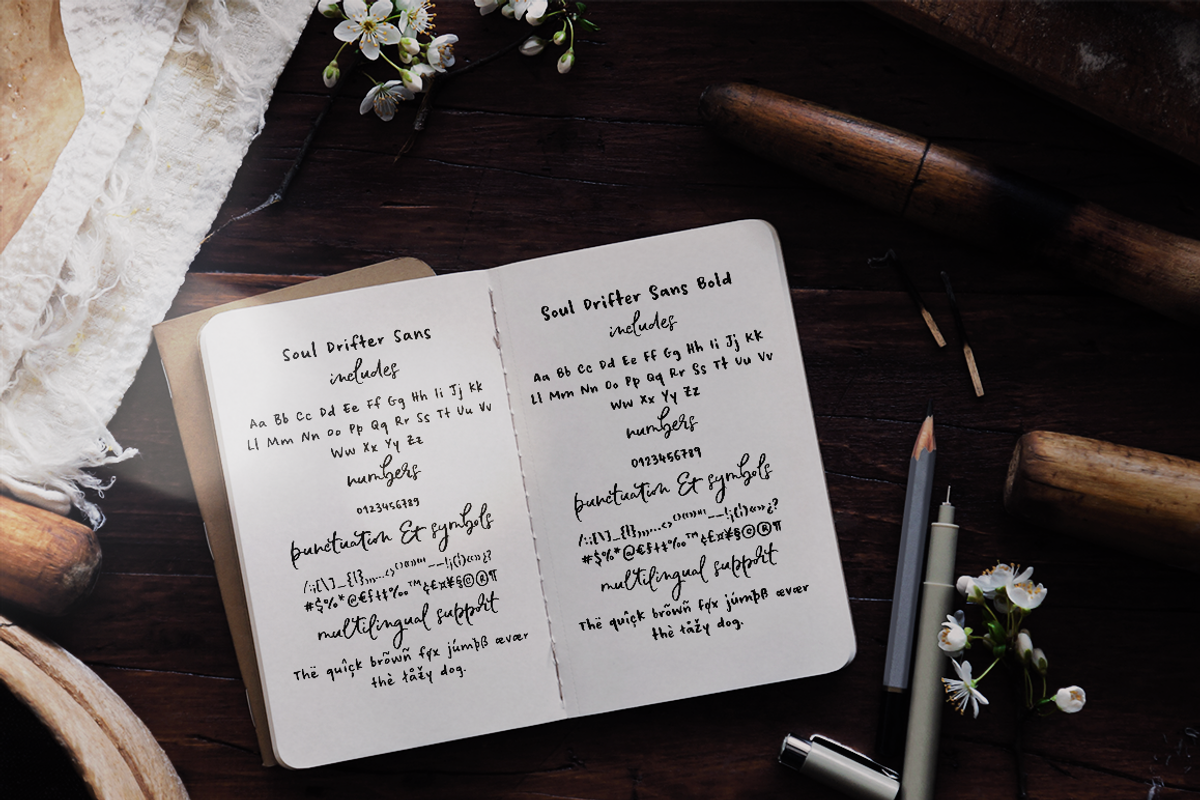 Soul Drifter Sans
includes
Aa Bb Cc Dd Ee Ff Gg Hh Ii Jj Kk
Ll Mm Nn Oo Pp Qq Rr Ss Tt Uu Vv
Ww Xx Yy Zz
numbers
0123456789
punctuation & symbols
multilingual support
Thë quîçk brõwñ føx júmþß ævær
thè łåžy dog.
Soul Drifter Sans Bold
includes
Aa Bb Cc Dd Ee Ff Gg Hh Ii Jj Kk
Ll Mm Nn Oo Pp Qq Rr Ss Tt Uu Vv
Ww Xx Yy Zz
numbers
0123456789
punctuation & symbols
#$%*@€ƒ†‡‰™¢£¤¥§©®¶
multilingual support
Thë quîçk brõwñ føx júmþß ævær
thè łåžy dog.